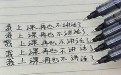 我上课再也不讲话了
我上课再也不讲话了
我上课再也不讲话了
我上课再也不讲话了
我上课再也不讲话了